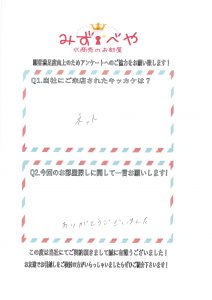 みず べや
水商売のお部屋
顧客満足度向上のためアンケートへのご協力をお願い致します！
Q1.当社にご来店されたキッカケは？
ネット
Q2.今回のお部屋探しに関して一言お願いします！
ありがとうございました
この度は当社にてご契約頂きまして誠に有難うございました！
お友達でお引越しをご検討の方がいらっしゃいましたらぜひご紹介下さいます！